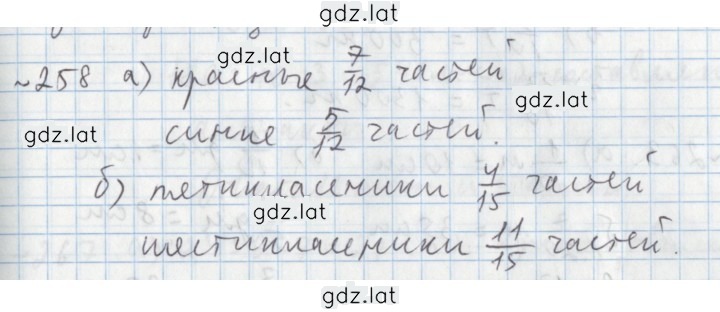 gdz.lat
~258 а) красные 7/12 частей
gdz.lat
gdz.lat
синие 5/12 частей.
gdz.lat
б) пятиклассники 4/15 частей
gdz.lat
шестиклассники 11/15 частей.
gdz.lat